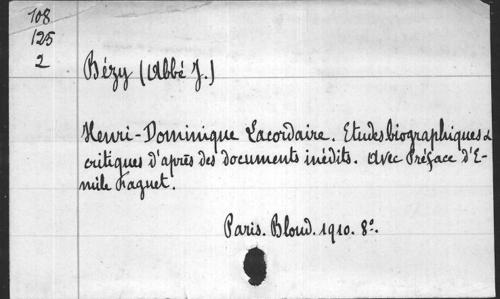 108
125
2
Bézy (Abbé J.)
Henri-Dominique Lacordaire. Etudes biographiques &
critiques d'après des documents inédits. Avec Préface d'E-
mile Faguet.
Paris. Bloud. 1910. 8°.